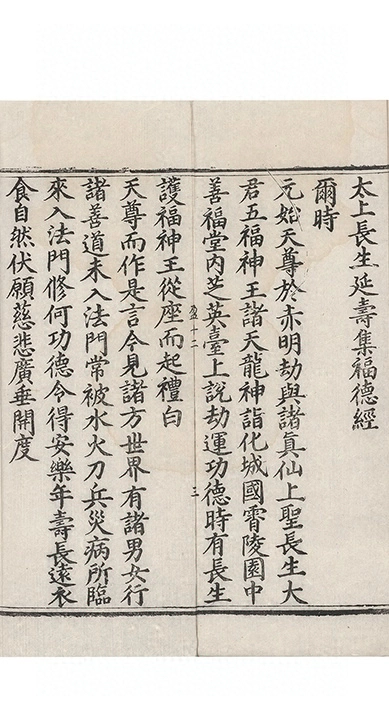 太上長生延壽集福德經
爾時
元始天尊於赤明劫與諸真仙上聖長生大
君五福神王諸天龍神詣化城國霄陵園中
善福堂內芝英臺上說劫運功德時有長生
十二
三
護福神王從座而起禮白
天尊而作是言今見諸方世界有諸男女行
諸善道未入法門常被水火刀兵災病所臨
來入法門修何功德令得安樂年壽長遠衣
食自然伏願慈悲廣垂開度